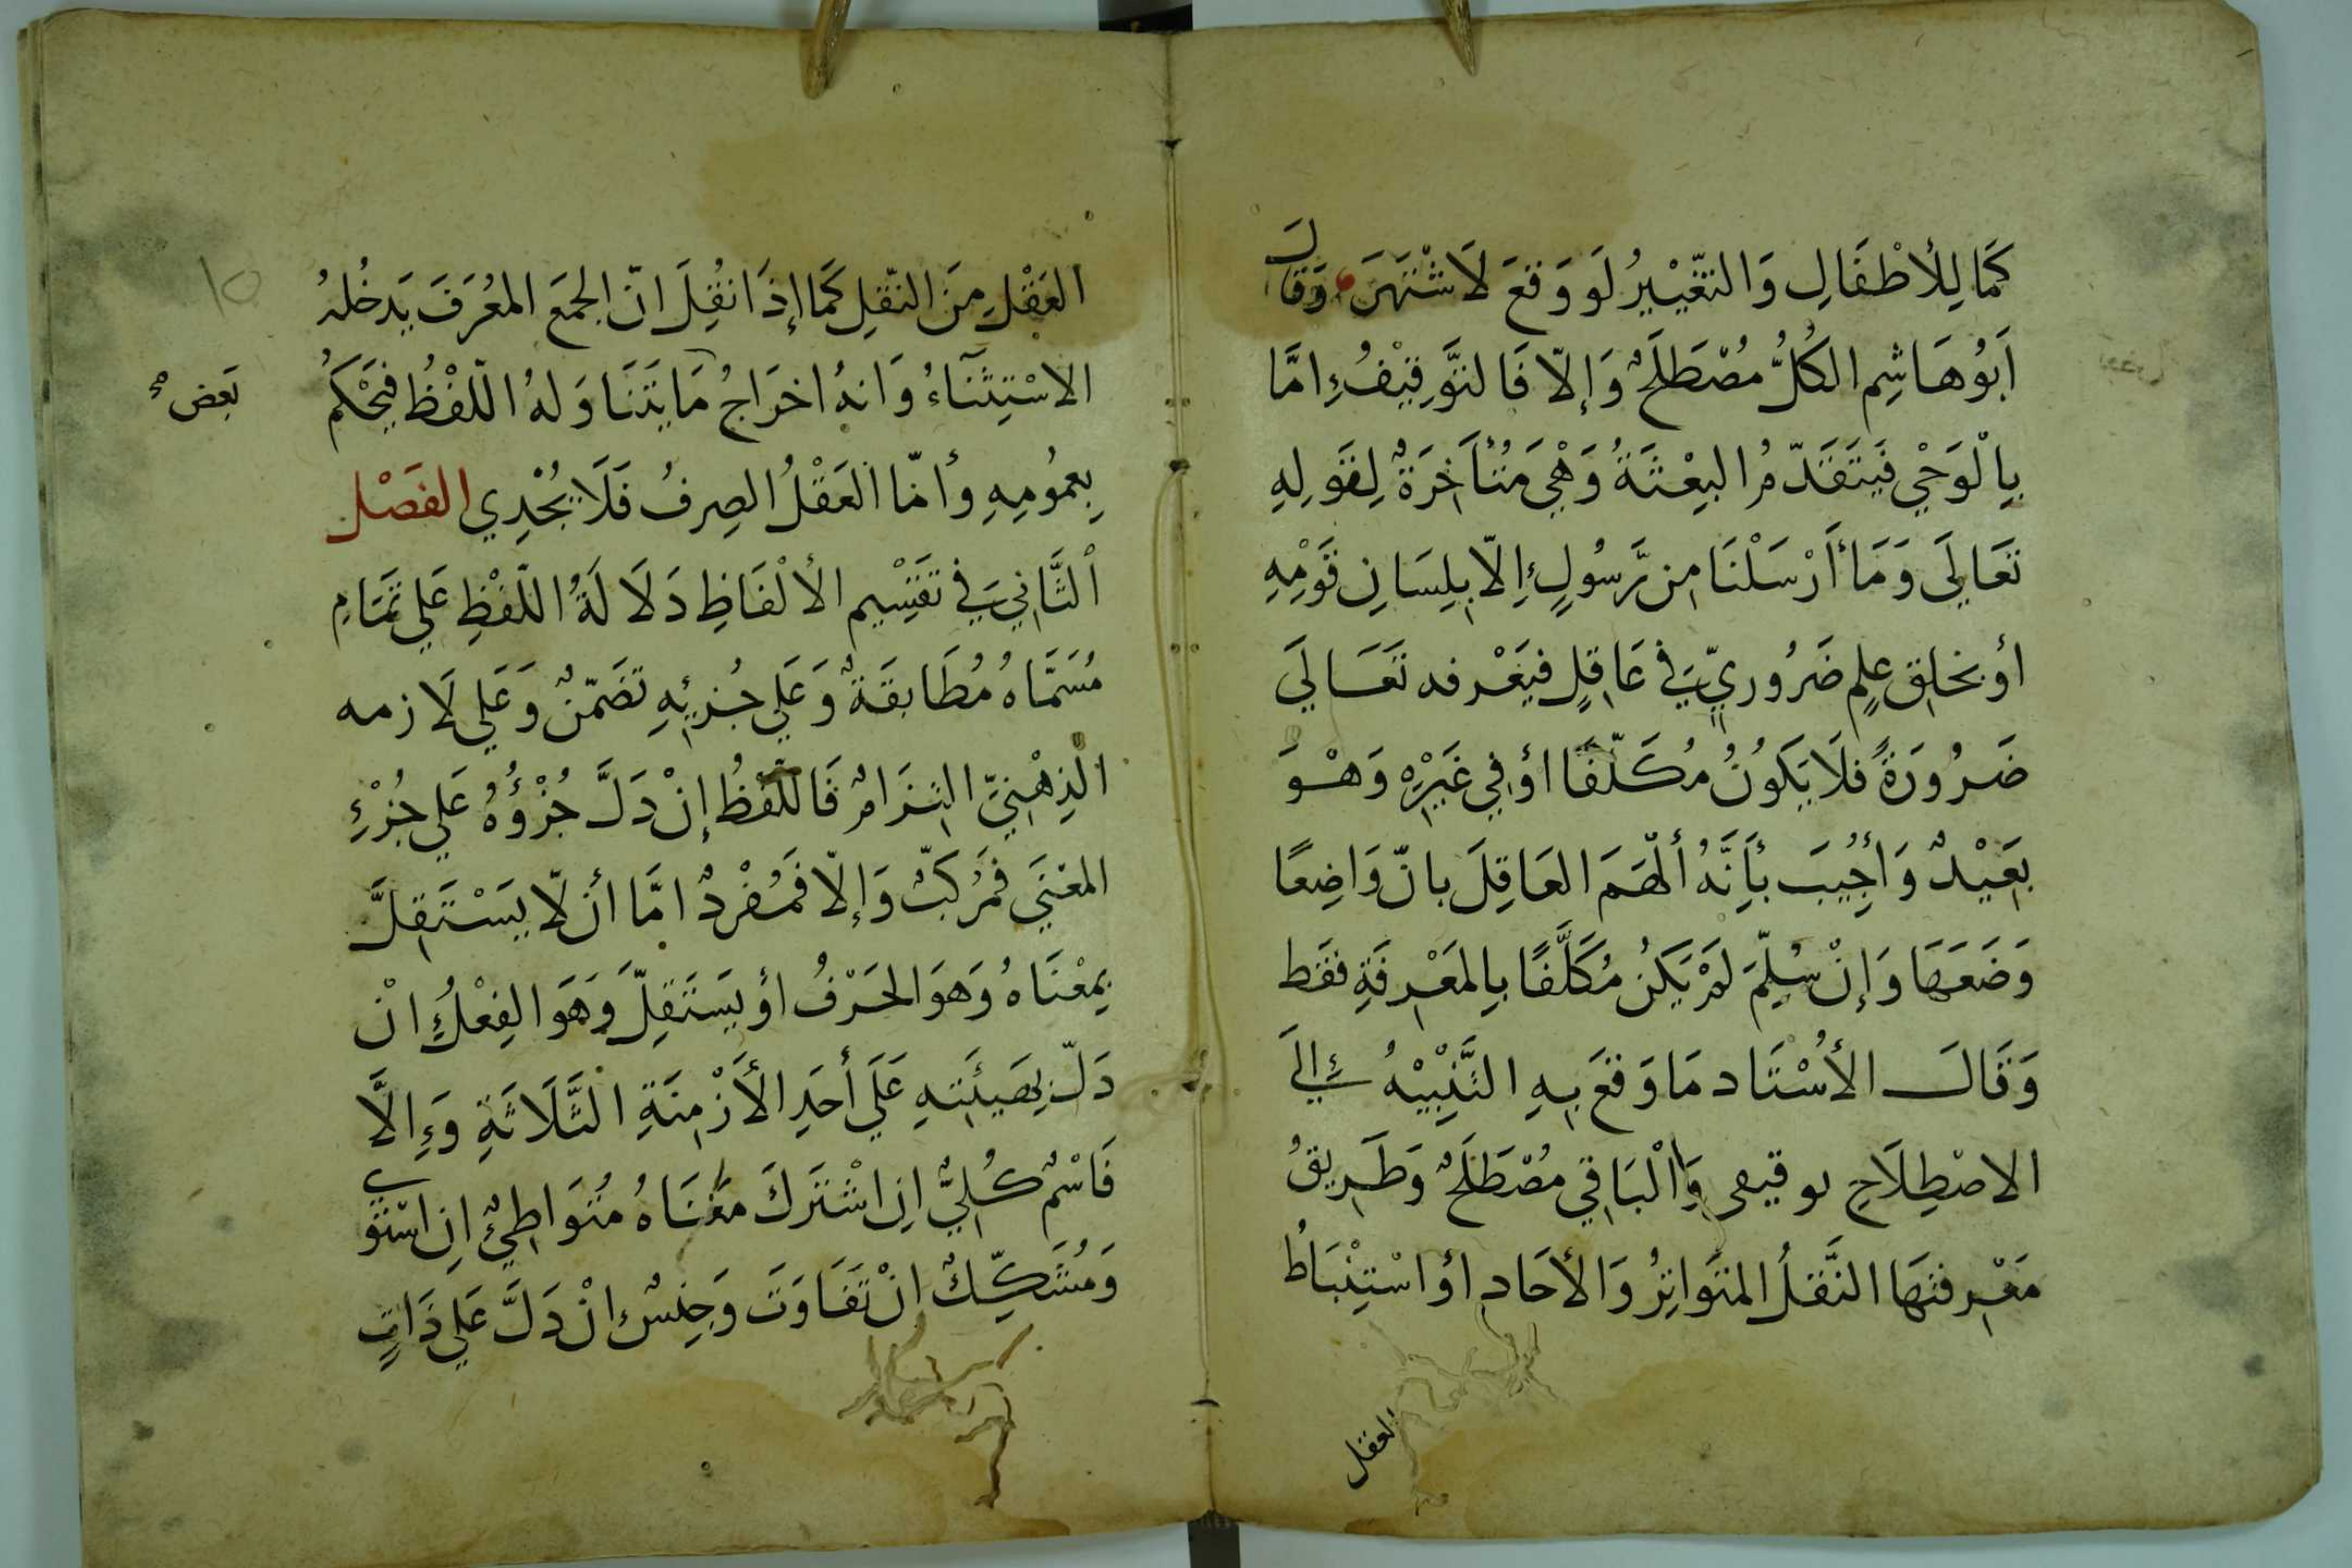 كَمَا لِلأطْفَالِ وَالتغّيْيرُ لَو وَقعَ لَاشْتهَرَ، وَقالَ
اَبُوُهَاشِم الكُلُّ مُصْطَلَحٌ وَإلّا فَالتوَّقِيْفُ إمَّا
بِالْوَحْي فَيَتَقَدّمُ البِعْثَةُ وَهْيَ مَتُأخِرَةٌ لِقَولِهِ
تعَالَي وَمَا أرْسَلْنَا مِن رَّسُولٍ إِلّا بِلِسَانِ قَوْمِهِ
أو بخلقِ علٍم ضَرُوريّ فِي عَاقِلٍ فيَعْرفه تَعَالَي
ضَرُورَةً فلَا يَكوُنُ مُكَلّفًا أوْ فِي غَيْرِهِ وَهْوَ
بَعِيْدٌ وَأجُيِبَ بأَنَّهُ ألْهَمَ العَاقِلَ بانّ وَاضِعًا
وَضَعَهَا وَإنْ سُلِمّ لَمْ يَكنُ مُكَلَّفًا بِالمَعْرِفَةِ فقَط
وَقَالَ الأسُتَاد مَا وَقعَ بِهِ التَّنْبِيْهُ إلَي
الاصْطِلَاحِ توقيفي وَالْبَاقِي مُصْطَلَحٌ وَطَرِيقُ
مَعْرِفتهَا النَّقلُ المتوَاتِرُ وَالأحَادِ أوْ اسْتِنْبَاطُ
العقل
العَقْلِ مِنَ النّقلِ كَمَا إذَا نقُِلَ انّ الجمَعَ المعُرَفَ يَدخُلهُ
الاسْتِثنَاءُ وَانهُ اخرَاجُ مَا يَتَنَاوَلهُ اللّفْظُ فيَحْكمُ
بَعضٌ
بِعمُومِهِ وأمّا العَقْلُ الصِرفُ فَلَا يجُْدِي الفَصْل
الْثَّانِي فِي تقَسْيِم الألْفَاظِ دَلَالَةُ اللّفْظِ عَلي تمَامِ
مُسَمَّاهُ مُطَابقَةٌ وَعَلَي جُزئِهِ تضَمّنٌ وَعَلي لَازمه
الّذِهْنِيّ التِزَامٌ فَاللّفْظُ إنْ دَلَّ جُزْؤُهُ عَلي جُزْءِ
المعْنَي فَمُرَكبّ وَإلّا فَمُفْردٌ امَّا أن لّا يَسْتَقِلَّ
بِمعْنَاهُ وَهَوَ الحَرْفُ أوْ يَستَقِلّ وَهَوَ الفِعْلُ انْ
دَلّ بِهَيئَتِهِ عَلَي أحَدِ الأزْمِنَةِ الثَّلَاثَةِ وَإِلَّا
فَاسْمٌ كُلِيٌّ اِن اشْترَكَ مَعْنَاهُ مُتوَاطِئٌ اِن اسْتوَي
وَمُشَكِّكٌ انْ تَفَاوَتَ وَجِنسٌ اِنْ دَلَّ عَلي ذَاتٍ
١٥